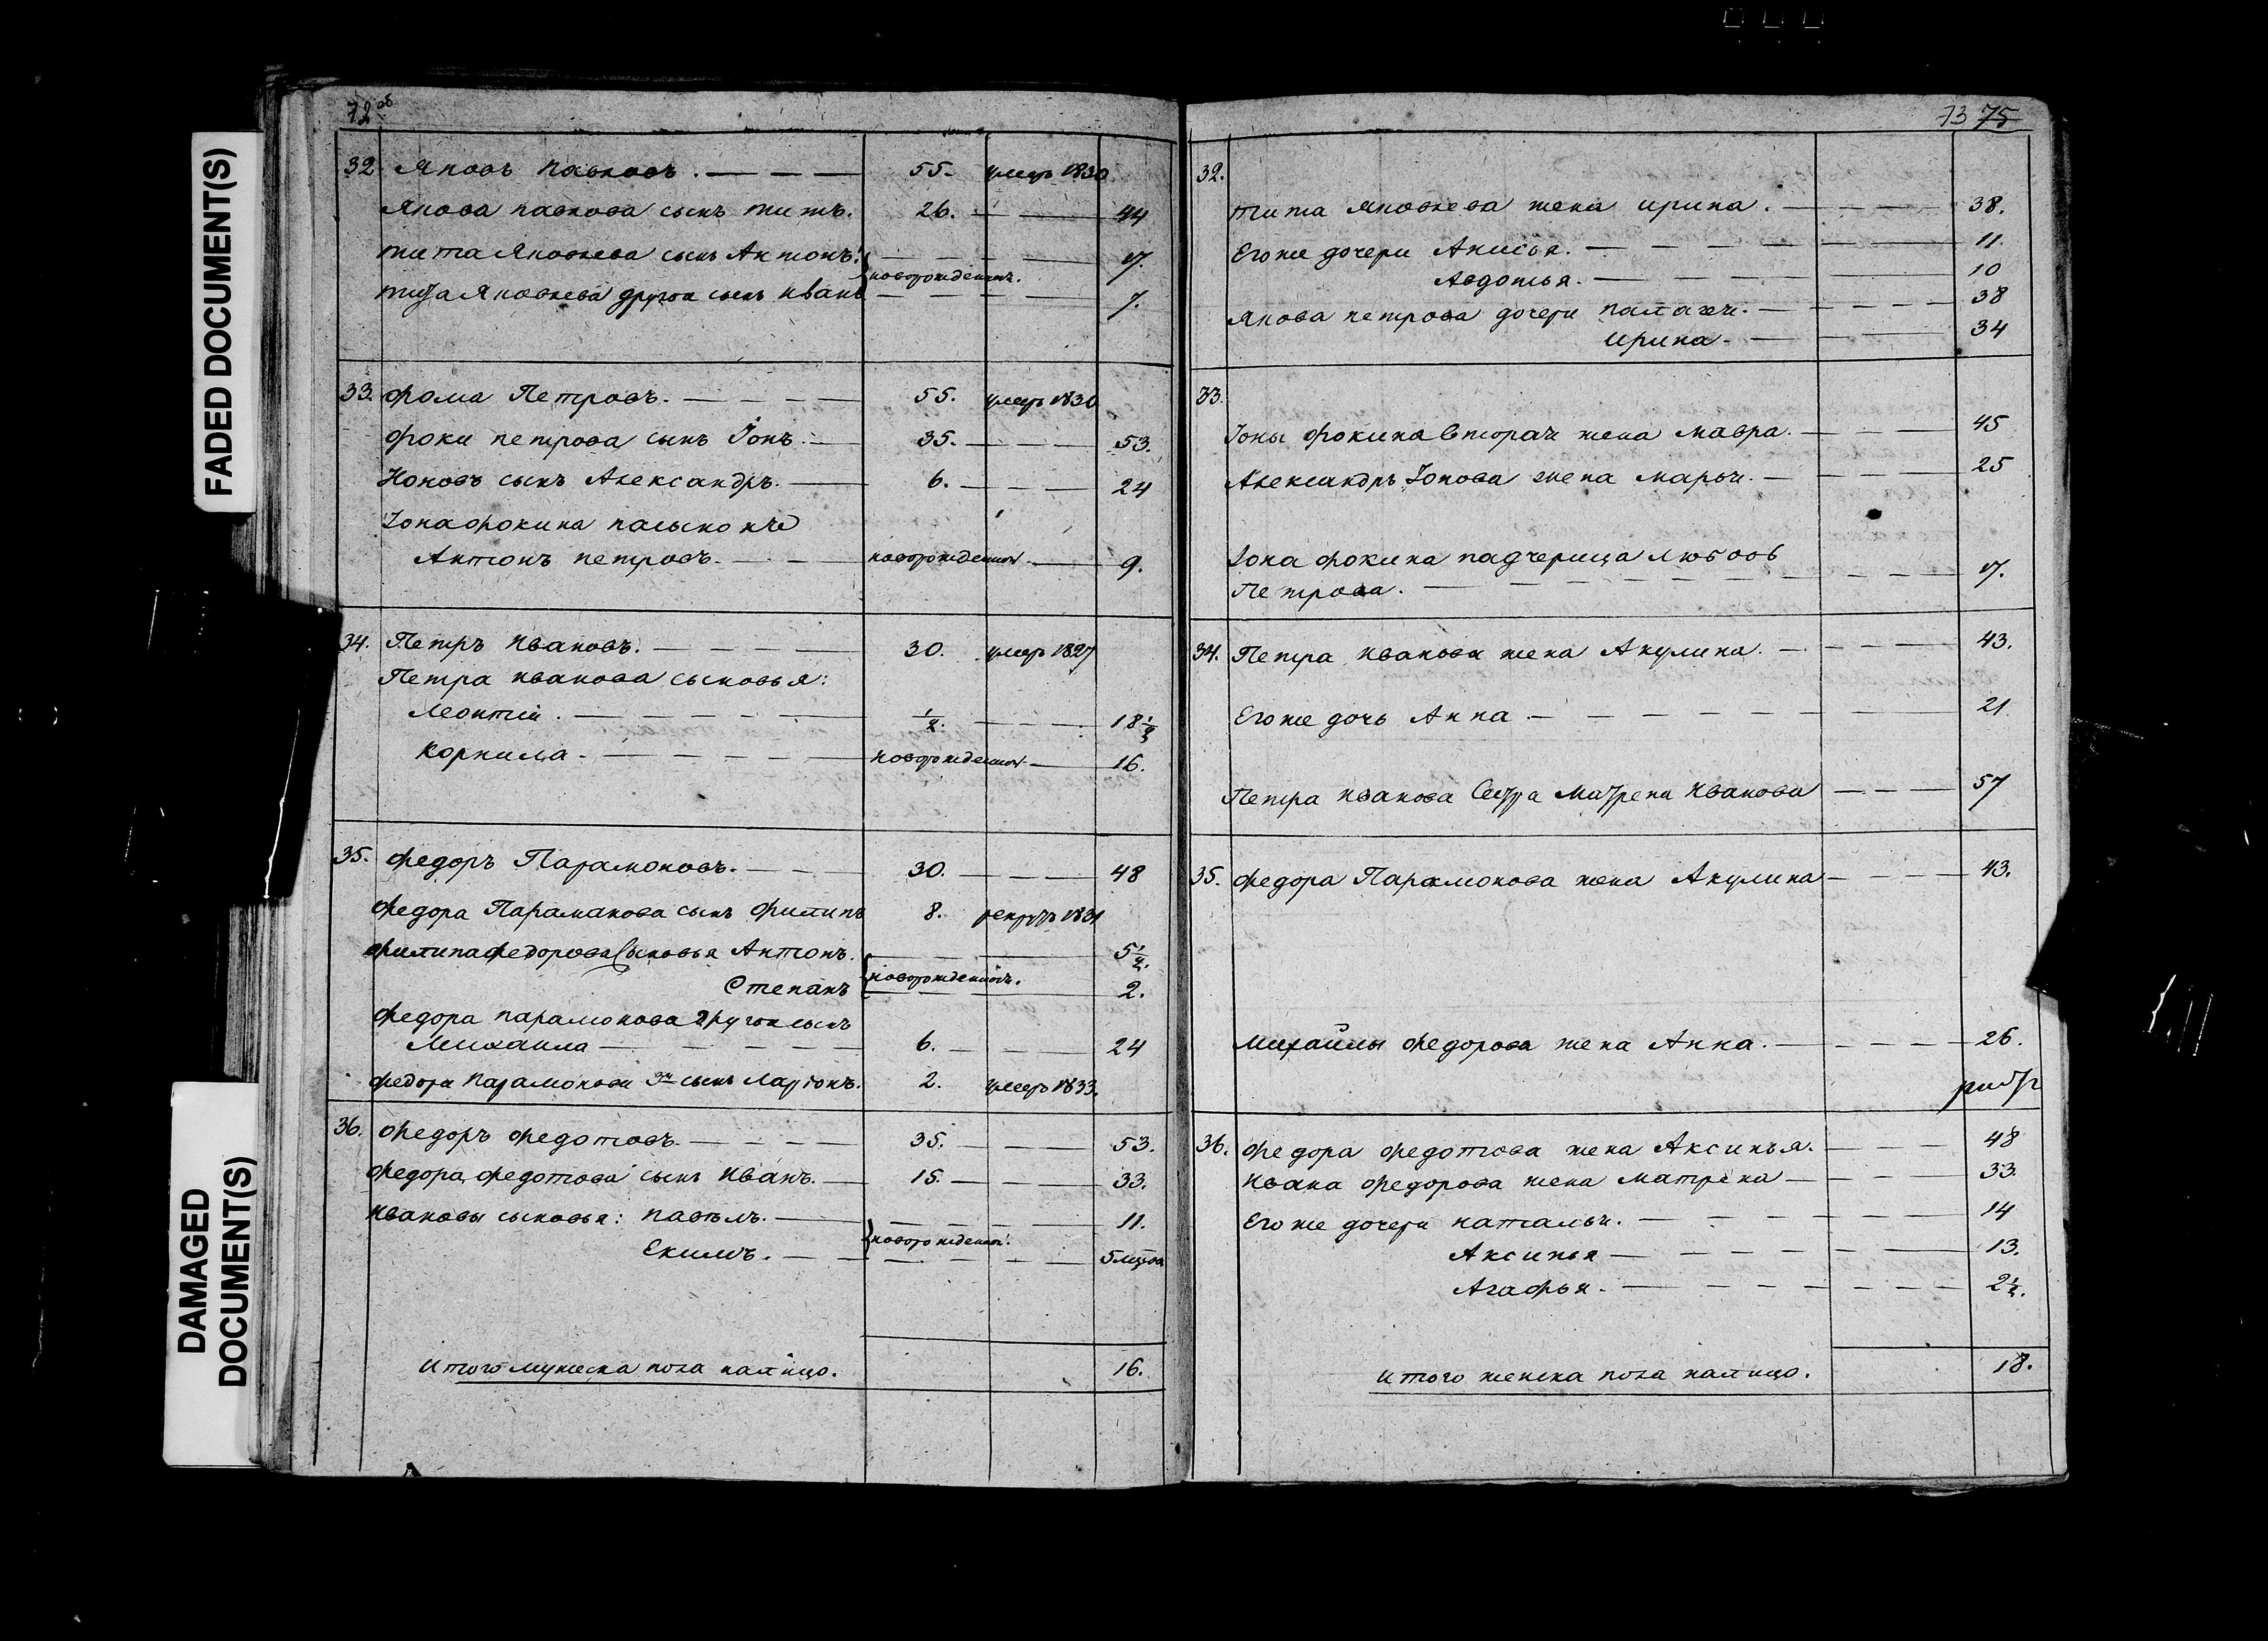 FADED DOCUMENT(S)
DAMAGED
DOCUMENT(S)
72 об
32 Яковъ Павловъ. 55. умеръ 1830
Якова павлова сынъ титъ. 26. 44
тита Яковлева сынъ Антонъ. 7.
новорожденные.
тита Яковлева другой сынъ иванъ 7.
33. фома Петровъ. 55. умеръ 1830
фоки петрова сынъ Іонъ. 35. 53.
Ионовъ сынъ Александръ. 6. 24
Іона фокина пасынокъ
Антонъ петровъ. новорожденный. 9.
34. Петръ Ивановъ. 30. умеръ 1827
Петра иванова сыновья:
Леонтій. 1/2. 18 1/2
корнила. новорожденный. 16.
35. федоръ Парамоновъ. 30. 48
федора Параманова сынъ филипъ 8. рекрутъ 1831
филипа федорова Сыновья Антонъ. 5 1/2.
новорожденные.
Степанъ 2.
федора парамонова другой сынъ
Михаила 6. 24
федора Парамонова 3й сынъ Ларіонъ. 2. умеръ 1833.
36. федоръ федотовъ. 35. 53.
федора федотова сынъ Иванъ. 15. 33.
Ивановы сыновья: павелъ. 11.
новорожденные.
Екимъ. 5 мцова
Итого мужеска пола налицо. 16.
73 75
32.
тита яковлева жена ирина. 38.
Его же дочери Анисья. 11.
Авдотья. 10
Якова петрова дочери палагеи. 38
Ирина. 34
33.
Іоны фокина вторая жена мавра. 45
Александръ Іонова жена марьи. 25
Іона фокина падчерица любовь
Петрова. 7.
34. Петра иванова жена Акулина. 43.
Его же дочь Анна 21
Петра иванова Сестра Матрена Иванова 57
35. федора Парамонова жена Акулина 43.
михайлы федорова жена Анна. 26.
36. федора федотова жена Аксинья. 48
Ивана федорова жена матрена 33.
Его же дочери натальи. 14
Аксинья 13.
Агафья. 2 1/2.
итого женска пола налицо. 18.